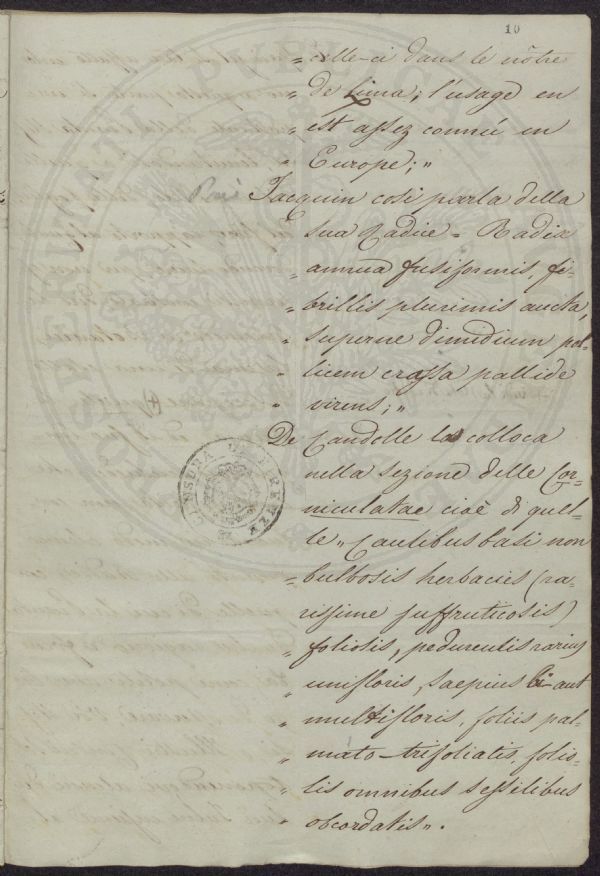 10
„ celle-ci dans le nôtre
„ de Lima; l'usage en
„ est assez connu en
„ Europe; „
Jacquin così parla della
sua Radice = Radix
„ annua fusiformis, fi-
„ brillis plurimis aucta,
„ superne dimidium pol-
„ licem crassa pallide
„ virens; „
De Candolle la colloca
nella sezione delle Cor-
niculatae cioè di quel-
le „ Caulibus basi non
„ bulbosis herbaceis (ra-
rissime suffruticosis)
„ foliosis, pedunculis rarius
„ unifloris, saepius bi-aut
„ multifloris, foliis pal-
„ mato-trifoliatis, folio-
„ lis omnibus sessilibus
„ obcordatis „.
CENSURA DI FIRENZE